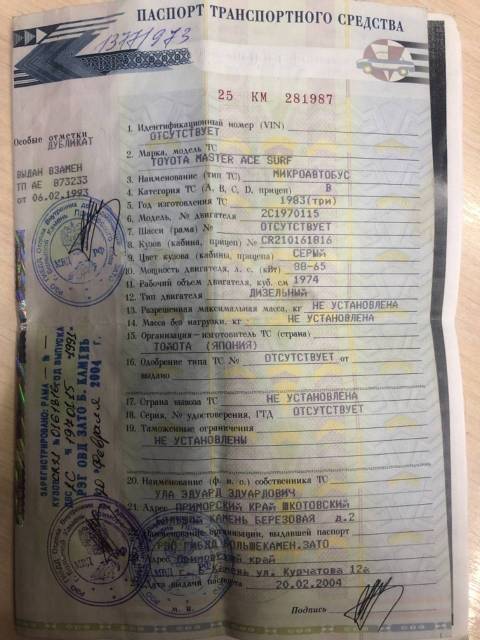 ПАСПОРТ ТРАНСПОРТНОГО СРЕДСТВА
1377/973
25 КМ 281987
Особые отметки
ДУБЛИКАТ
ВЫДАН ВЗАМЕН
ТП АЕ 873233
от 06.02.1993
1. Идентификационный номер (VIN)
ОТСУТСТВУЕТ
2. Марка, модель ТС
TOYOTA MASTER ACE SURF
3. Наименование (тип ТС) МИКРОАВТОБУС
4. Категория ТС (А, В, С, D, прицеп) В
5. Год изготовления ТС 1983(три)
6. Модель, № двигателя 2C1970115
7. Шасси (рама) № ОТСУТСТВУЕТ
8. Кузов (кабина, прицеп) № CR210161816
9. Цвет кузова (кабины, прицепа) СЕРЫЙ
10. Мощность двигателя, л. с. (кВт) 88-65
11. Рабочий объем двигателя, куб. см 1974
12. Тип двигателя ДИЗЕЛЬНЫЙ
13. Разрешенная максимальная масса, кг НЕ УСТАНОВЛЕНА
14. Масса без нагрузки, кг НЕ УСТАНОВЛЕНА
15. Организация-изготовитель ТС (страна)
ТОЙОТА (ЯПОНИЯ)
16. Одобрение типа ТС № ОТСУТСТВУЕТ от
выдано
17. Страна вывоза ТС НЕ УСТАНОВЛЕНА
18. Серия, № удостоверения, ГТД ОТСУТСТВУЕТ
19. Таможенные ограничения
НЕ УСТАНОВЛЕНЫ
ЗАРЕГИСТРИРОВАНО: РАМА
КУЗОВ
ГОД ВЫПУСКА
ДВС
РЭГ ОВД ЗАТО Б. КАМЕНЬ
20 Февраля 2004 г.
20. Наименование (ф. и. о.) собственника ТС
УЛА ЭДУАРД ЭДУАРДОВИЧ
21. Адрес ПРИМОРСКИЙ КРАЙ ШКОТОВСКИЙ
БОЛЬШОЙ КАМЕНЬ БЕРЕЗОВАЯ д.2
Наименование организации, выдавшей паспорт
ГИБДД БОЛЬШЕКАМЕН.ЗАТО
Адрес Приморский край
Камень ул. Курчатова 12а
Дата выдачи паспорта 20.02.2004
М. П.
Подпись